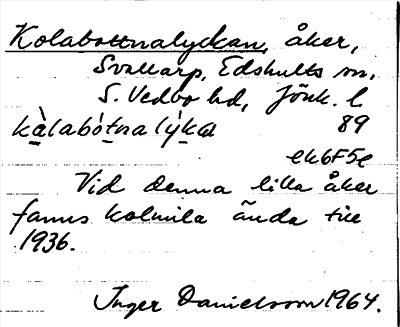 Kolabottnalyckan, åker,
Svallarp, Edshults sn,
S. Vedbo hd, Jönk. l
kàlabótnalýka 89
ek6F5e
Vid denna lilla åker
fanns kolmila ända till
1936.
Inger Danielsson 1964.